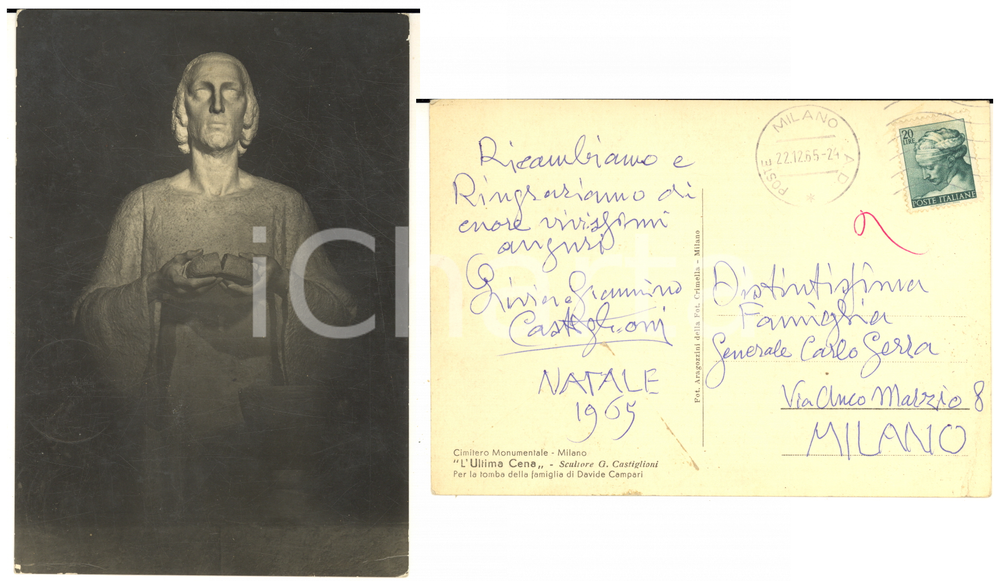 iCharta
Ricambiamo e
Ringraziamo di
cuore vivissimi
auguri
Giannino
Castiglioni
NATALE
1965
Cimitero Monumentale - Milano
"L'Ultima Cena„ - Scultore G. Castiglioni
Per la tomba della famiglia di Davide Campari
Fot. Aragozzini della Fot. Crimella - Milano
MILANO A.D.
22.12.65-24
POSTE
20
LIRE
POSTE ITALIANE
Distintissima
Famiglia
Generale Carlo Gerra
Via Anco Marzio 8
MILANO